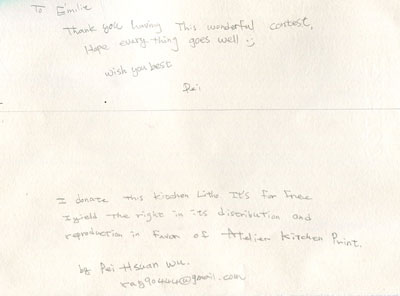 To Emilie
Thank you having This wonderful contest,
Hope every thing goes well :)
wish you best
Pei
I donate this Kitschen Litho It's for free
I yield the right in its distribution and
reproduction in favor of Atelier Kitchen Print.
by Pei-Hsuan Wu.
@gmail.com